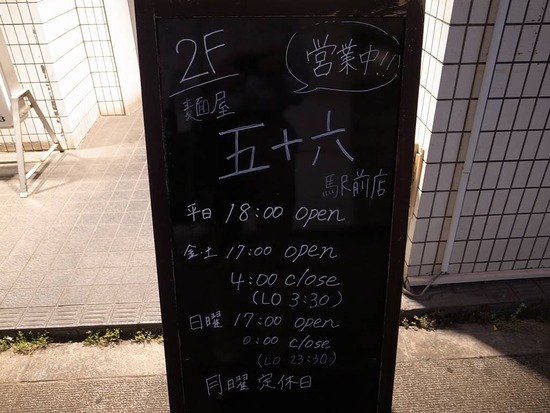 2F
営業中!!
麺屋
五十六
駅前店
平日 18:00 open
金・土 17:00 open
4:00 close
(LO 3:30)
日曜 17:00 open
0:00 close
(LO 23:30)
月曜 定休日